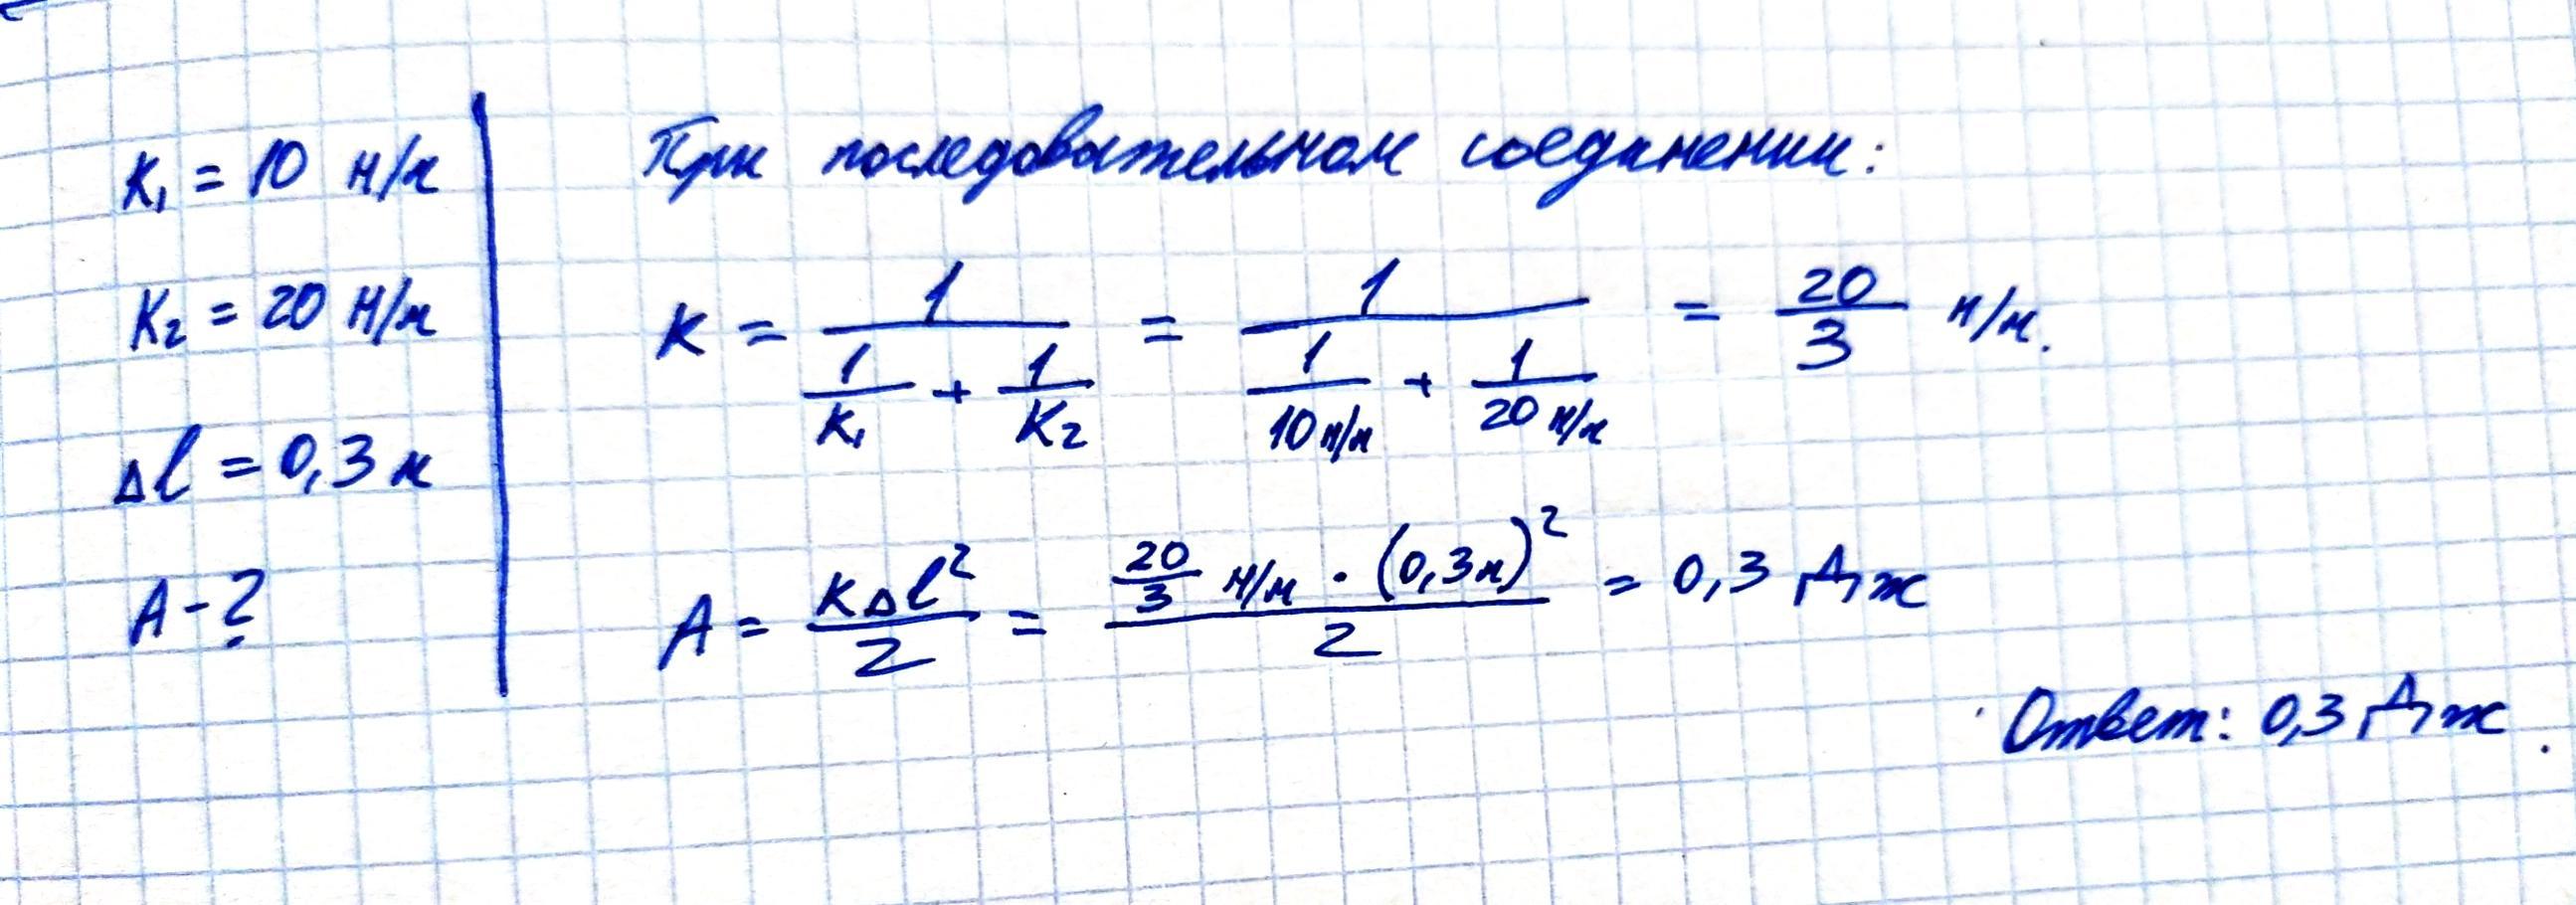 K₁ = 10 н/м
K₂ = 20 н/м
Δl = 0,3 м
A - ?
При последовательном соединении:
K = 1 / (1/K₁ + 1/K₂) = 1 / (1/10 н/м + 1/20 н/м) = 20/3 н/м.
A = KΔl²/2 = (20/3 н/м · (0,3м)²)/2 = 0,3 Дж
Ответ: 0,3 Дж.